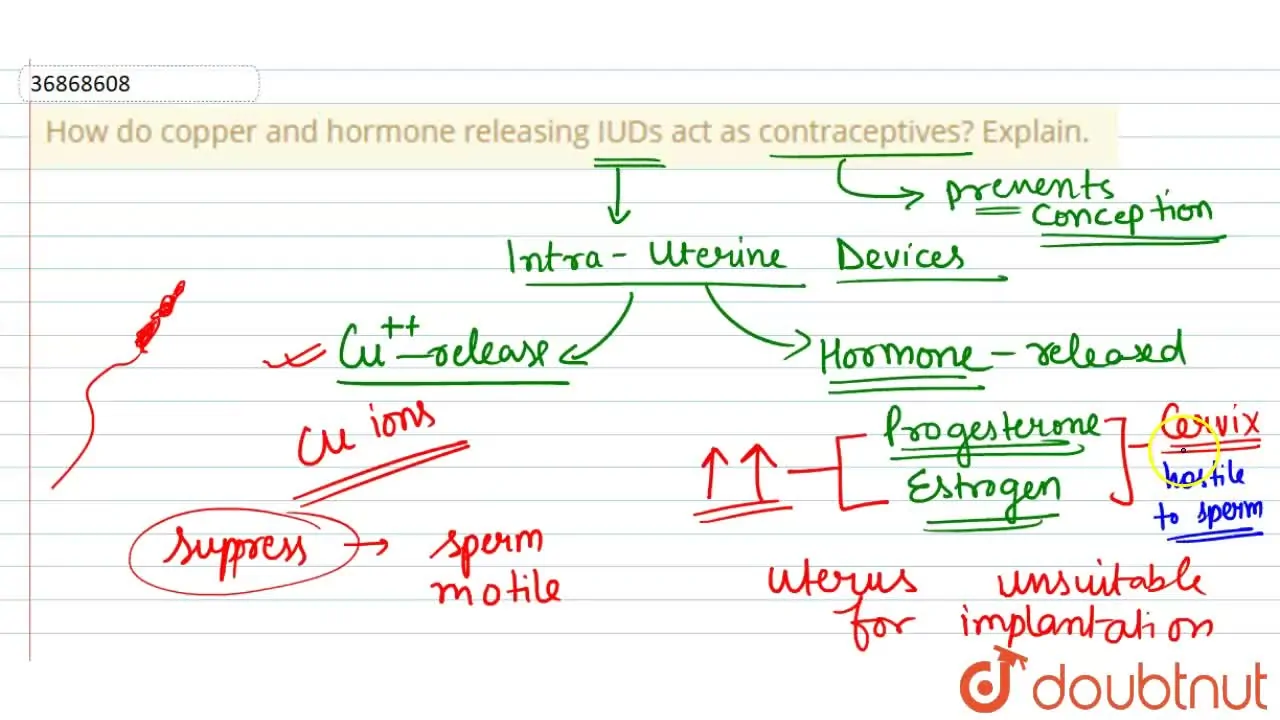 36868608
How do copper and hormone releasing IUDs act as contraceptives? Explain.
prevents
conception
Intra - Uterine Devices
Cu++ - release
Hormone - released
Cu ions
Progesterone
Estrogen
Cervix
hostile
to sperm
suppress → sperm
motile
uterus unsuitable
for implantation
doubtnut